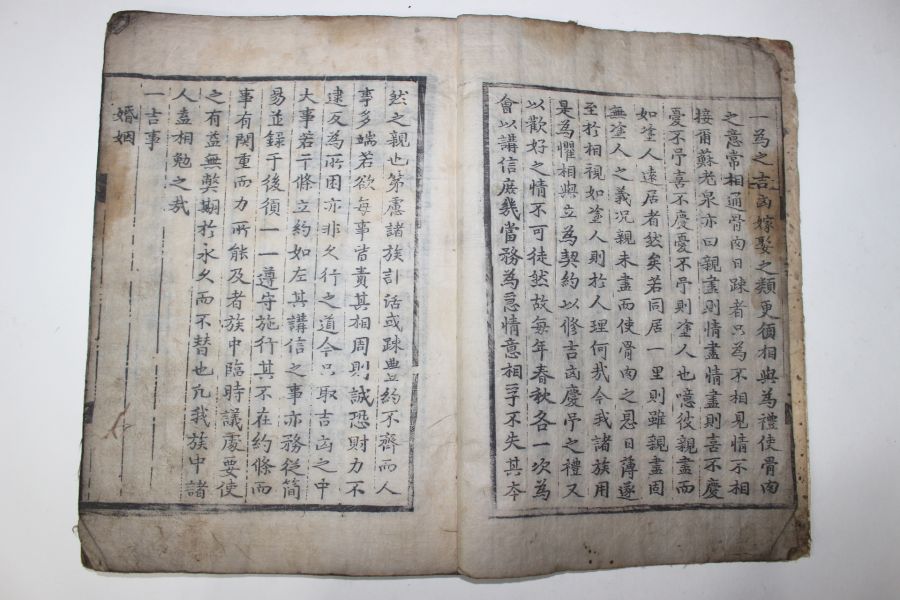 一為之吉凶嫁娶之類更須相與為禮使骨肉
之意常相通骨肉日踈者只為不相見情不相
接爾蘇老泉亦曰親盡則情盡情盡則喜不慶
憂不弔喜不慶憂不弔則塗人也噫彼親盡而
如塗人遠居者然矣若同居一里則雖親盡固
無塗人之義況親未盡而使骨肉之恩日薄遂
至於相視如塗人則於人理何哉今我諸族用
是為懼相與立為契約以修吉凶慶弔之禮又
以歡好之情不可徒然故每年春秋各一次為
會以講信庶幾當務為急情意相孚不失其本
然之親也第慮諸族計活或踈豊約不齊而人
事多端若欲每事皆責其相周則誠恐財力不
逮反為所困亦非久行之道今只取吉凶之中
大事若干條立約如左其講信之事亦務從簡
易並錄于後須一一遵守施行其不在約條而
事有関重而力所能及者族中臨時議處要使
之有益無弊期於永久而不替也凡我族中諸
人盍相勉之哉
一吉事
婚姻